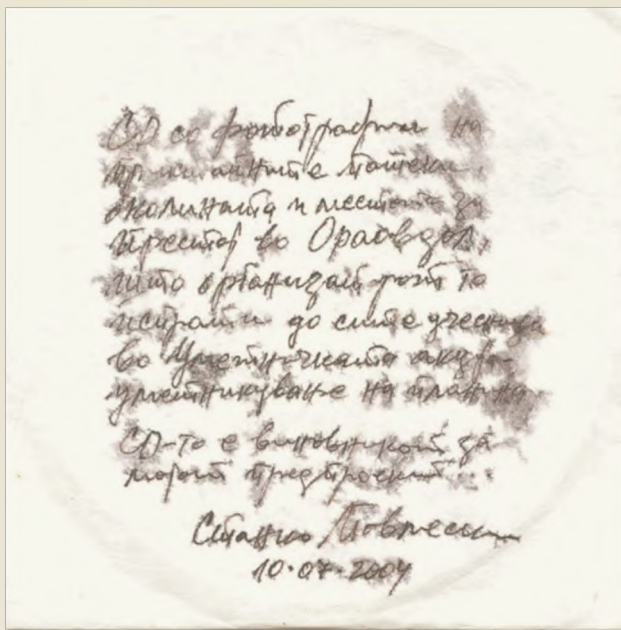 CD со фотографии на
планинските патеки
околината и местото за
престој во Ораовдол,
што организаторот го
испрати до сите учесници
во Уметничката акција
уметникување на планина
CD-то е виновникот за
мојот предпроект...
Станко Павлески
10.07.2004